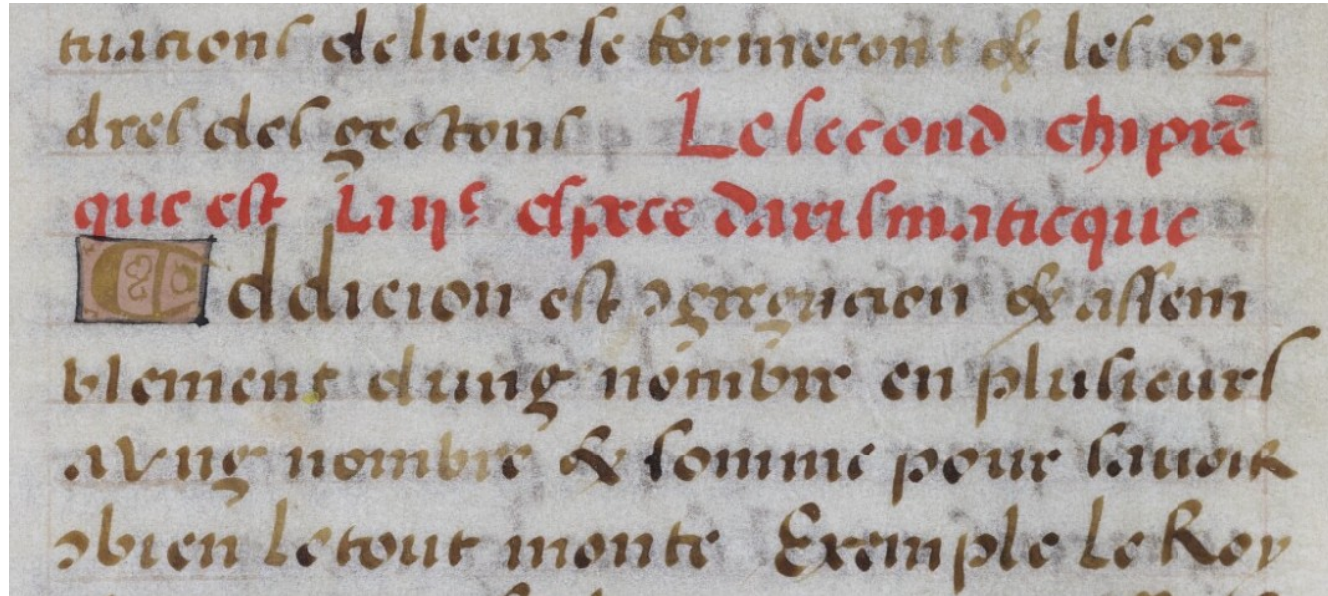 tuacions de lieux se formeront & les or
dres des gectons Le second chipitre
que est La iiȷᵉ espece darismaticque
Addicion est ꝯgregacion & assem
blement dung nombre en plusieurs
a vng nombre & somme pour sauoir
ꝯbien le tout monte Exemple Le Roy